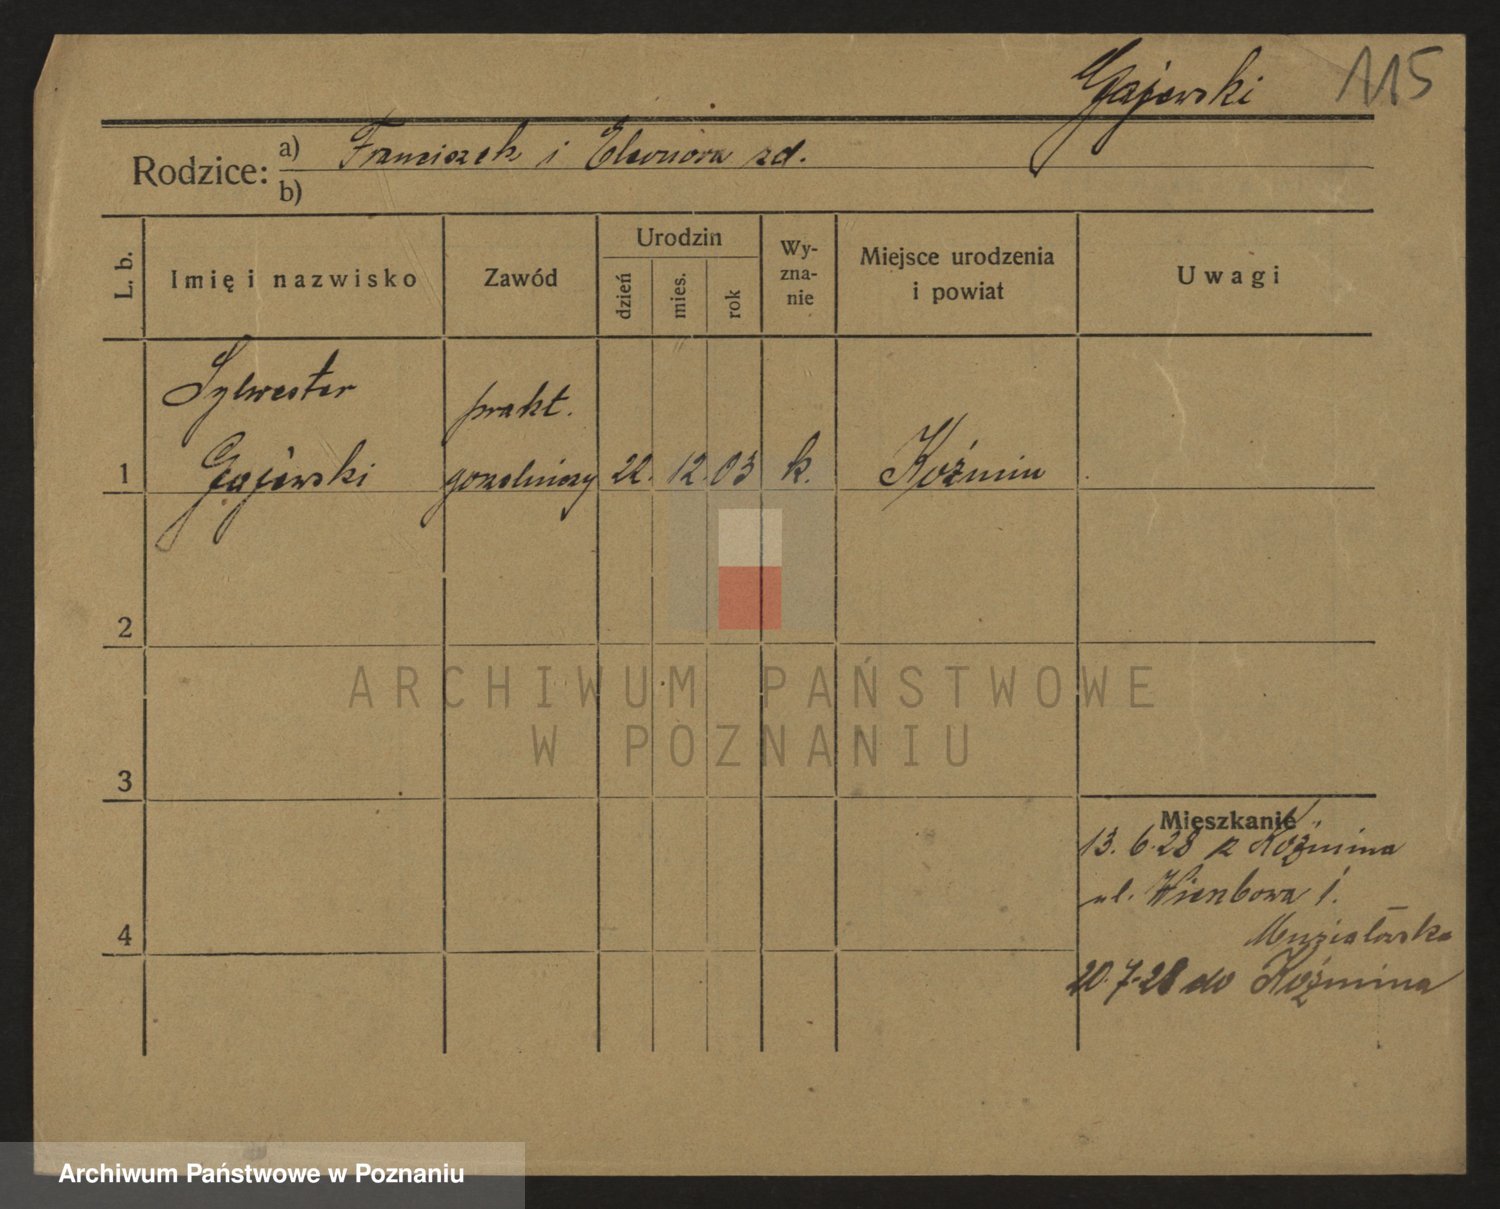 Gajewski 115
Rodzice: a) Franciszek i Eleonora zd.
b)
L. b. Imię i nazwisko Zawód Urodzin dzień mies. rok Wyznanie Miejsce urodzenia i powiat Uwagi
Sylwester prakt.
1 Gajewski gorzelniczy 22. 12. 03 k. Koźmin
2
ARCHIWUM PAŃSTWOWE
W POZNANIU
3
Mieszkanie
13. 6. 28 z Koźmina
ul. 1.
4
20. 7. 28 do Koźmina
Archiwum Państwowe w Poznaniu